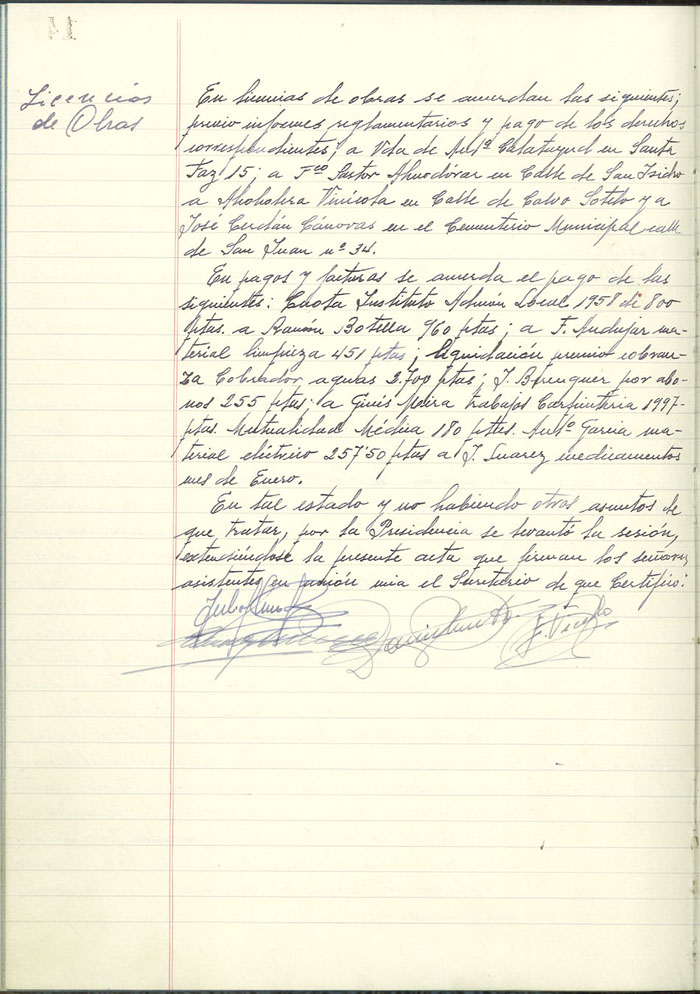 Licencias
de Obras
En licencias de obras se acuerdan las siguientes;
previo informes reglamentarios y pago de los derechos
correspondientes; a Vda de Antº Calatayud en Santa
Faz 15; a Fco Pastor Almodóvar en Calle de San Isidro
a Alcoholera Vinícola en Calle de Calvo Sotelo y a
José Cerdán Cánovas en el Cementerio Municipal calle
de San Juan nº 34.
En pagos y facturas se acuerda el pago de las
siguientes: Cuota Instituto Admon Local 1958 de 800
ptas. a Ramón Botella 960 ptas; a F. Andujar ma-
terial limpieza 451 ptas; liquidación premio cobran-
za Cobrador aguas 2.700 ptas; J. Berenguer por abo-
nos 255 ptas; a Ginés Maira trabajos Carpinteria 1997-
ptas. Mutualidad Médica 180 ptas. Antº Garcia ma-
terial eléctrico 257'50 ptas a J. Suarez medicamentos
mes de Enero.
En tal estado y no habiendo otros asuntos de
que tratar, por la Presidencia se levantó la sesión,
extendiéndose la presente acta que firman los señores
asistentes en unión mia el Secretario de que Certifico: